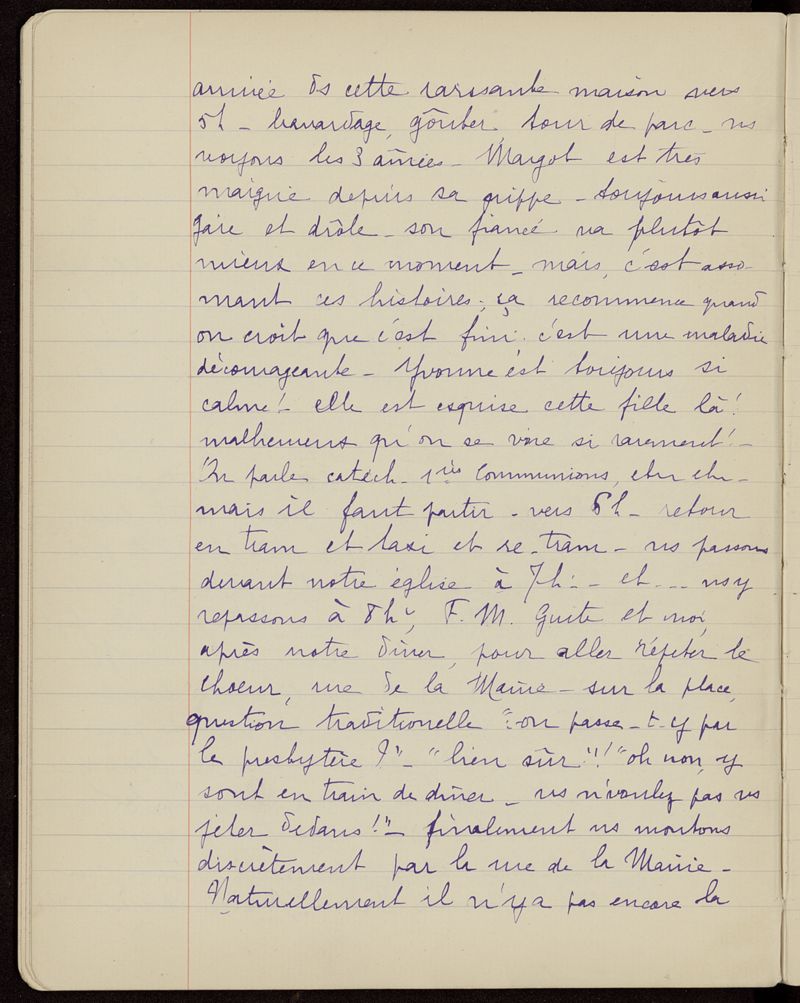 arrivée ds cette ravissante maison vers
5h - bavardage, goûter, tour de parc - ns
voyons les 3 aînées - Margot est très
maigrie depuis sa grippe - toujours aussi
gaie et drôle - son fiancé va plutôt
mieux en ce moment - mais, c'est asso-
mant ces histoires, ça recommence quand
on croit que c'est fini. c'est une maladie
décourageante - Yvonne est toujours si
calme! elle est exquise cette fille là!
malheureux qu'on se voie si rarement! -
On parle catéch. 1ères Communions, etc etc -
mais il faut partir - vers 6h - retour
en tram et taxi et re-tram - ns passons
devant notre église à 7h. - et... ns y
repassons à 8h, F. M. Guite et moi,
après notre dîner, pour aller répéter le
choeur, rue de la Mairie - sur la place,
question traditionelle "on passe-t-y par
le presbytère?" - "bien sûr!!" "oh non, y
sont en train de dîner - ns n'voulez pas ns
jeter dedans!" - finalement ns montons
discrètement par la rue de la Mairie -
Naturellement il n'y a pas encore la